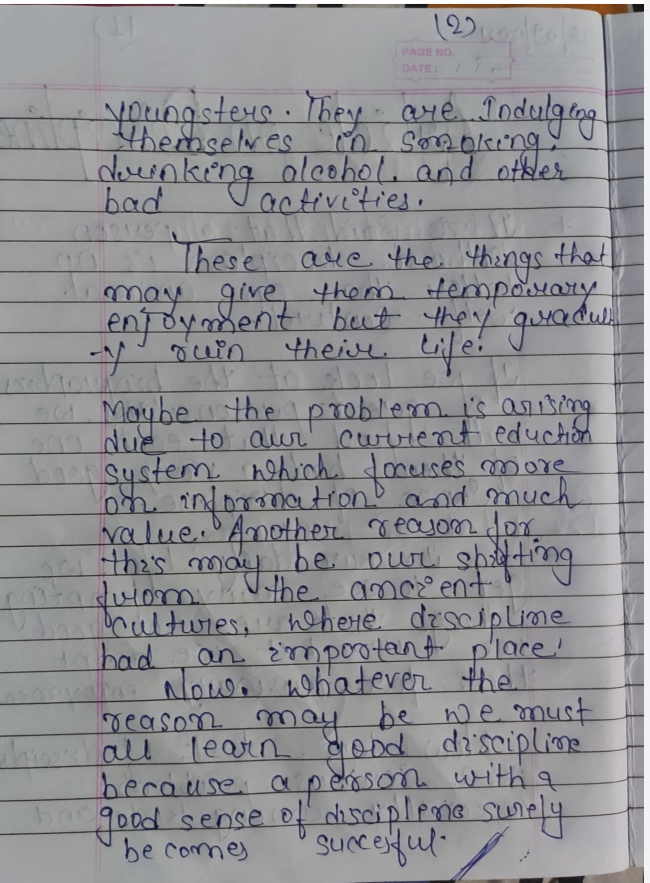 (2)
PAGE NO.
DATE:
youngsters. They are Indulging
themselves in smoking,
drinking alcohol. and other
bad activities.
These are the things that
may give them temporary
enjoyment but they gradull
-y ruin their life.
Maybe the problem is arising
due to our current eduction
system which focuses more
on information and much
value. Another reason for
this may be our shifting
from the ancient
cultures, where discipline
had an important place.
Now. whatever the
reason may be we must
all learn good discipline
because a person with a
good sense of discipline surely
becomes succesful.